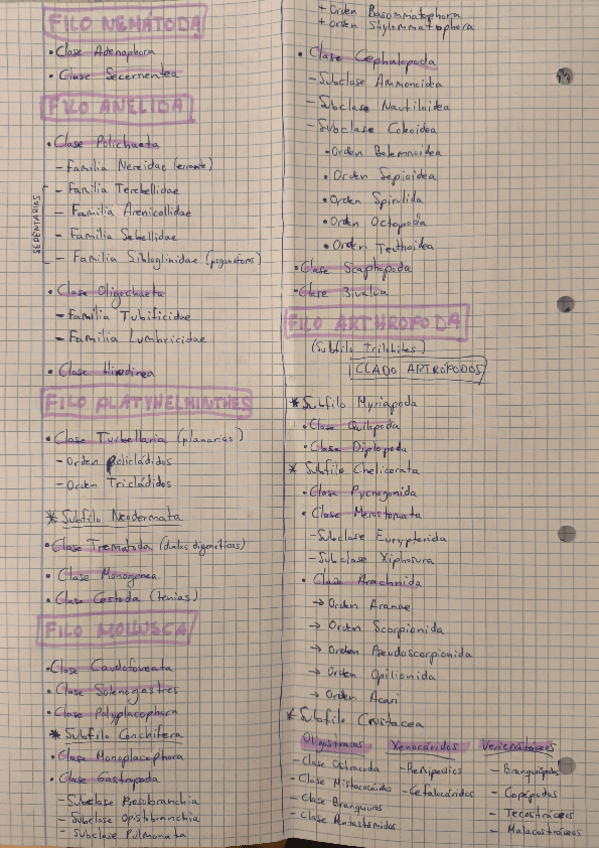 FILO NEMÁTODA
• Clase Adenophora
• Clase Secernentea
FILO ANELIDA
• Clase Polichaeta
- Familia Nereidae (errante)
SEDENTARIAS
- Familia Terebellidae
- Familia Arenicollidae
- Familia Sabellidae
- Familia Sibloglinidae (pogonóforos)
• Clase Oligochaeta
- Familia Tubificidae
- Familia Lumbricidae
• Clase Hirudinea
FILO PLATYHELMINTHES
• Clase Turbellaria (planarias)
- Orden Policládidos
- Orden Tricládidos
* Subfilo Neodermata
• Clase Trematoda (duelas digenéticas)
• Clase Monogenea
• Clase Cestoda (tenias)
FILO MOLLUSCA
• Clase Caudofoveata
• Clase Solenogastres
• Clase Polyplacophora
* Subfilo Conchifera
• Clase Monoplacophora
• Clase Gastropoda
- Subclase Prosobranchia
- Subclase Opistobranchia
- Subclase Pulmonata
+ Orden Basommatophora
+ Orden Stylommatophora
• Clase Cephalopoda
- Subclase Ammonoidea
- Subclase Nautiloidea
- Subclase Coleoidea
• Orden Belemnoidea
• Orden Sepioidea
• Orden Spirulida
• Orden Octopoda
• Orden Teuthoidea
• Clase Scaphopoda
• Clase Bivalva
FILO ARTHROPODA
(Subfilo trilobites)
CLADO ARTRÓPODOS
* Subfilo Myriapoda
• Clase Quilopoda
• Clase Diplopoda
* Subfilo Chelicerata
• Clase Pycnogonida
• Clase Merostomata
- Subclase Eurypterida
- Subclase Xiphosura
• Clase Arachnida
→ Orden Araneae
→ Orden Scorpionida
→ Orden Pseudoscorpionida
→ Orden Opilionida
→ Orden Acari
* Subfilo Crustacea
Oligostracos
- Clase Ostracoda
- Clase Mistacocáridos
- Clase Branquiuros
- Clase Pentastómidos
Xenocáridos
- Remipedios
- Cefalocáridos
Vericrustáceos
- Branquiópodos
- Copépodos
- Tecostráceos
- Malacostráceos